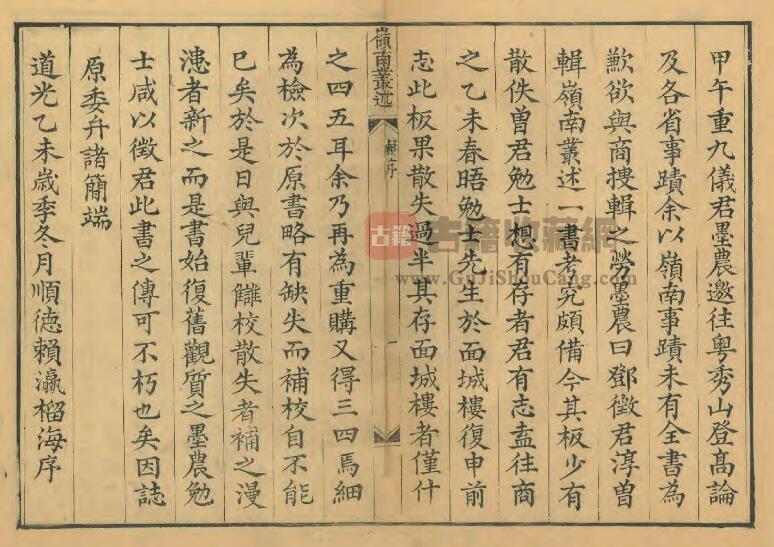 甲午重九儀君墨農邀往粵秀山登高論
及各省事蹟余以嶺南事蹟未有全書為
歉欲與商搜輯之勞墨農曰鄧徵君淳曾
輯嶺南叢述一書考究頗備今其板少有
散佚曾君勉士想有存者君有志盍往商
之乙未春晤勉士先生於面城樓復申前
志此板果散失過半其存面城樓者僅什
嶺南叢述
賴序
一
之四五耳余乃再為重購又得三四焉細
為檢次於原書略有缺失而補校自不能
已矣於是日與兒輩讎校散失者補之漫
漶者新之而是書始復舊觀質之墨農勉
士咸以徵君此書之傳可不朽也矣因誌
原委弁諸簡端
道光乙未歲季冬月順德賴瀛榴海序
古籍
古籍收藏網
www.GuJiShouCang.com